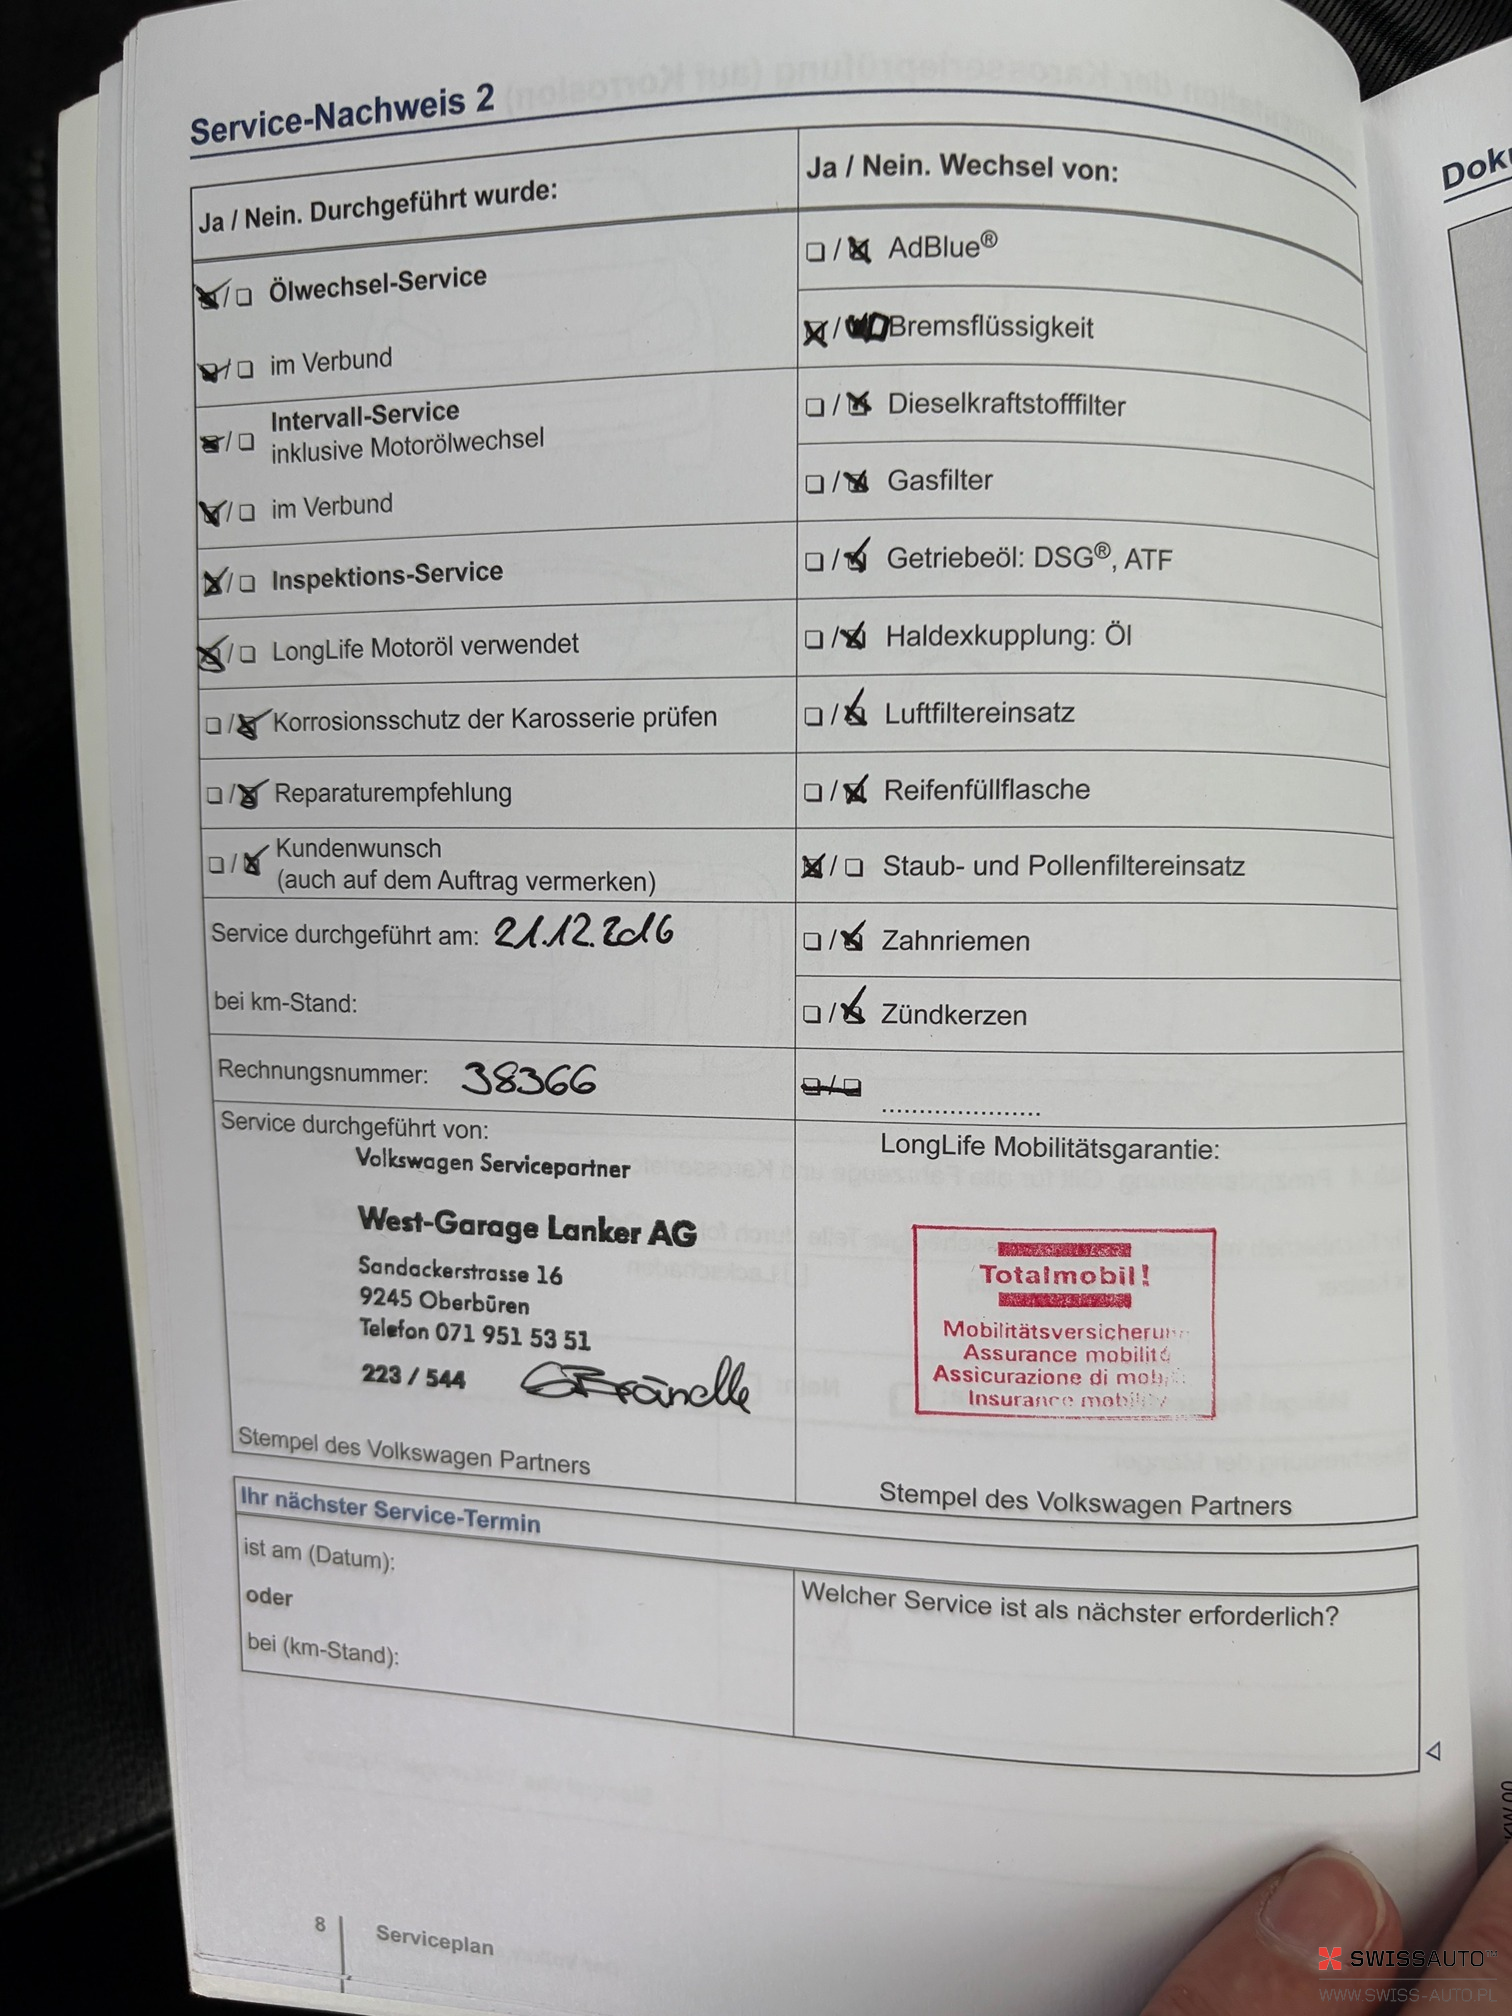 Service-Nachweis 2
Ja / Nein. Durchgeführt wurde:
Ölwechsel-Service
im Verbund
Intervall-Service
inklusive Motorölwechsel
im Verbund
Inspektions-Service
LongLife Motoröl verwendet
Korrosionsschutz der Karosserie prüfen
Reparaturempfehlung
Kundenwunsch
(auch auf dem Auftrag vermerken)
Service durchgeführt am: 21.12.2016
bei km-Stand:
Rechnungsnummer: 38366
Service durchgeführt von:
Volkswagen Servicepartner
West-Garage Lanker AG
Sandackerstrasse 16
9245 Oberbüren
Telefon 071 951 53 51
223 / 544
Stempel des Volkswagen Partners
Ja / Nein. Wechsel von:
AdBlue®
Bremsflüssigkeit
Dieselkraftstofffilter
Gasfilter
Getriebeöl: DSG®, ATF
Haldexkupplung: Öl
Luftfiltereinsatz
Reifenfüllflasche
Staub- und Pollenfiltereinsatz
Zahnriemen
Zündkerzen
.....................
LongLife Mobilitätsgarantie:
Totalmobil!
Mobilitätsversicherun
Assurance mobilité
Assicurazione di mob
Insurance mobility
Stempel des Volkswagen Partners
Ihr nächster Service-Termin
ist am (Datum):
oder
bei (km-Stand):
Welcher Service ist als nächster erforderlich?
8
Serviceplan
Dok
SWISSAUTO
WWW.SWISS-AUTO.PL